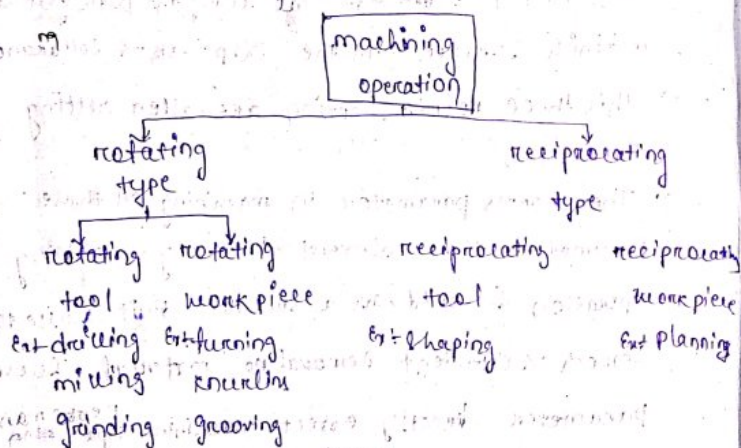 machining
operation
rotating
type
reciprocating
type
rotating
tool
Ex:- drilling
milling
grinding
rotating
workpiece
Ex:- turning.
knurling
grooving
reciprocating
tool
Ex:- Shaping
reciprocating
workpiece
Ex:- Planning